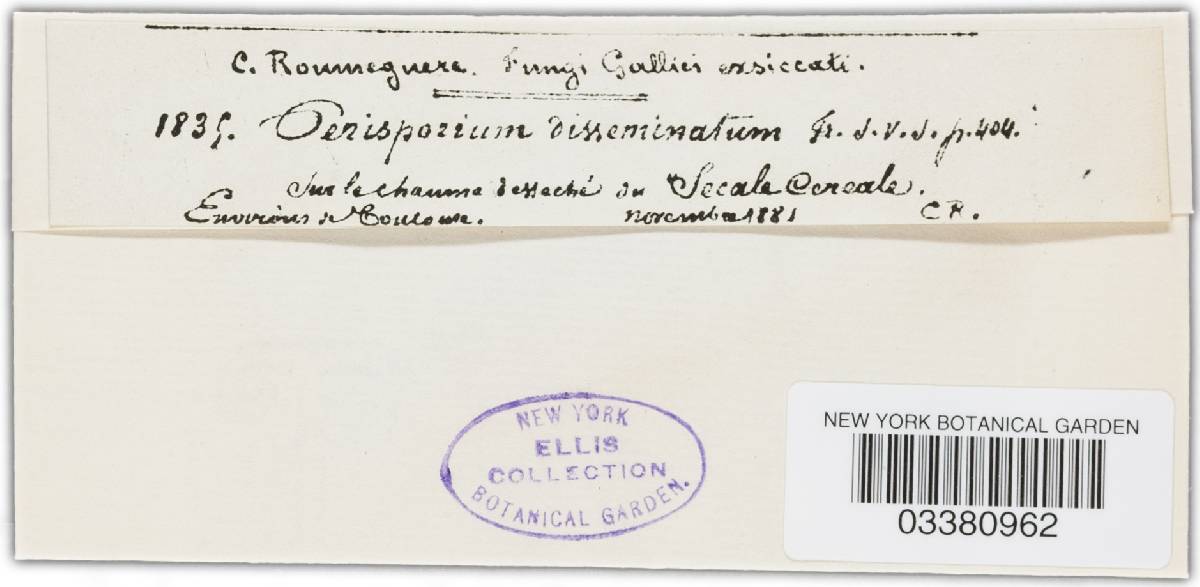 C. Roumeguere. Fungi Gallici exsiccati.
1835. Perisporium disseminatum Fr. S. V. S. p. 404.
Sur le chaume desseché du Secale Cereale.
Environs de Toulouse. novembre 1881 C R.
NEW YORK
ELLIS
COLLECTION
BOTANICAL GARDEN.
NEW YORK BOTANICAL GARDEN
03380962